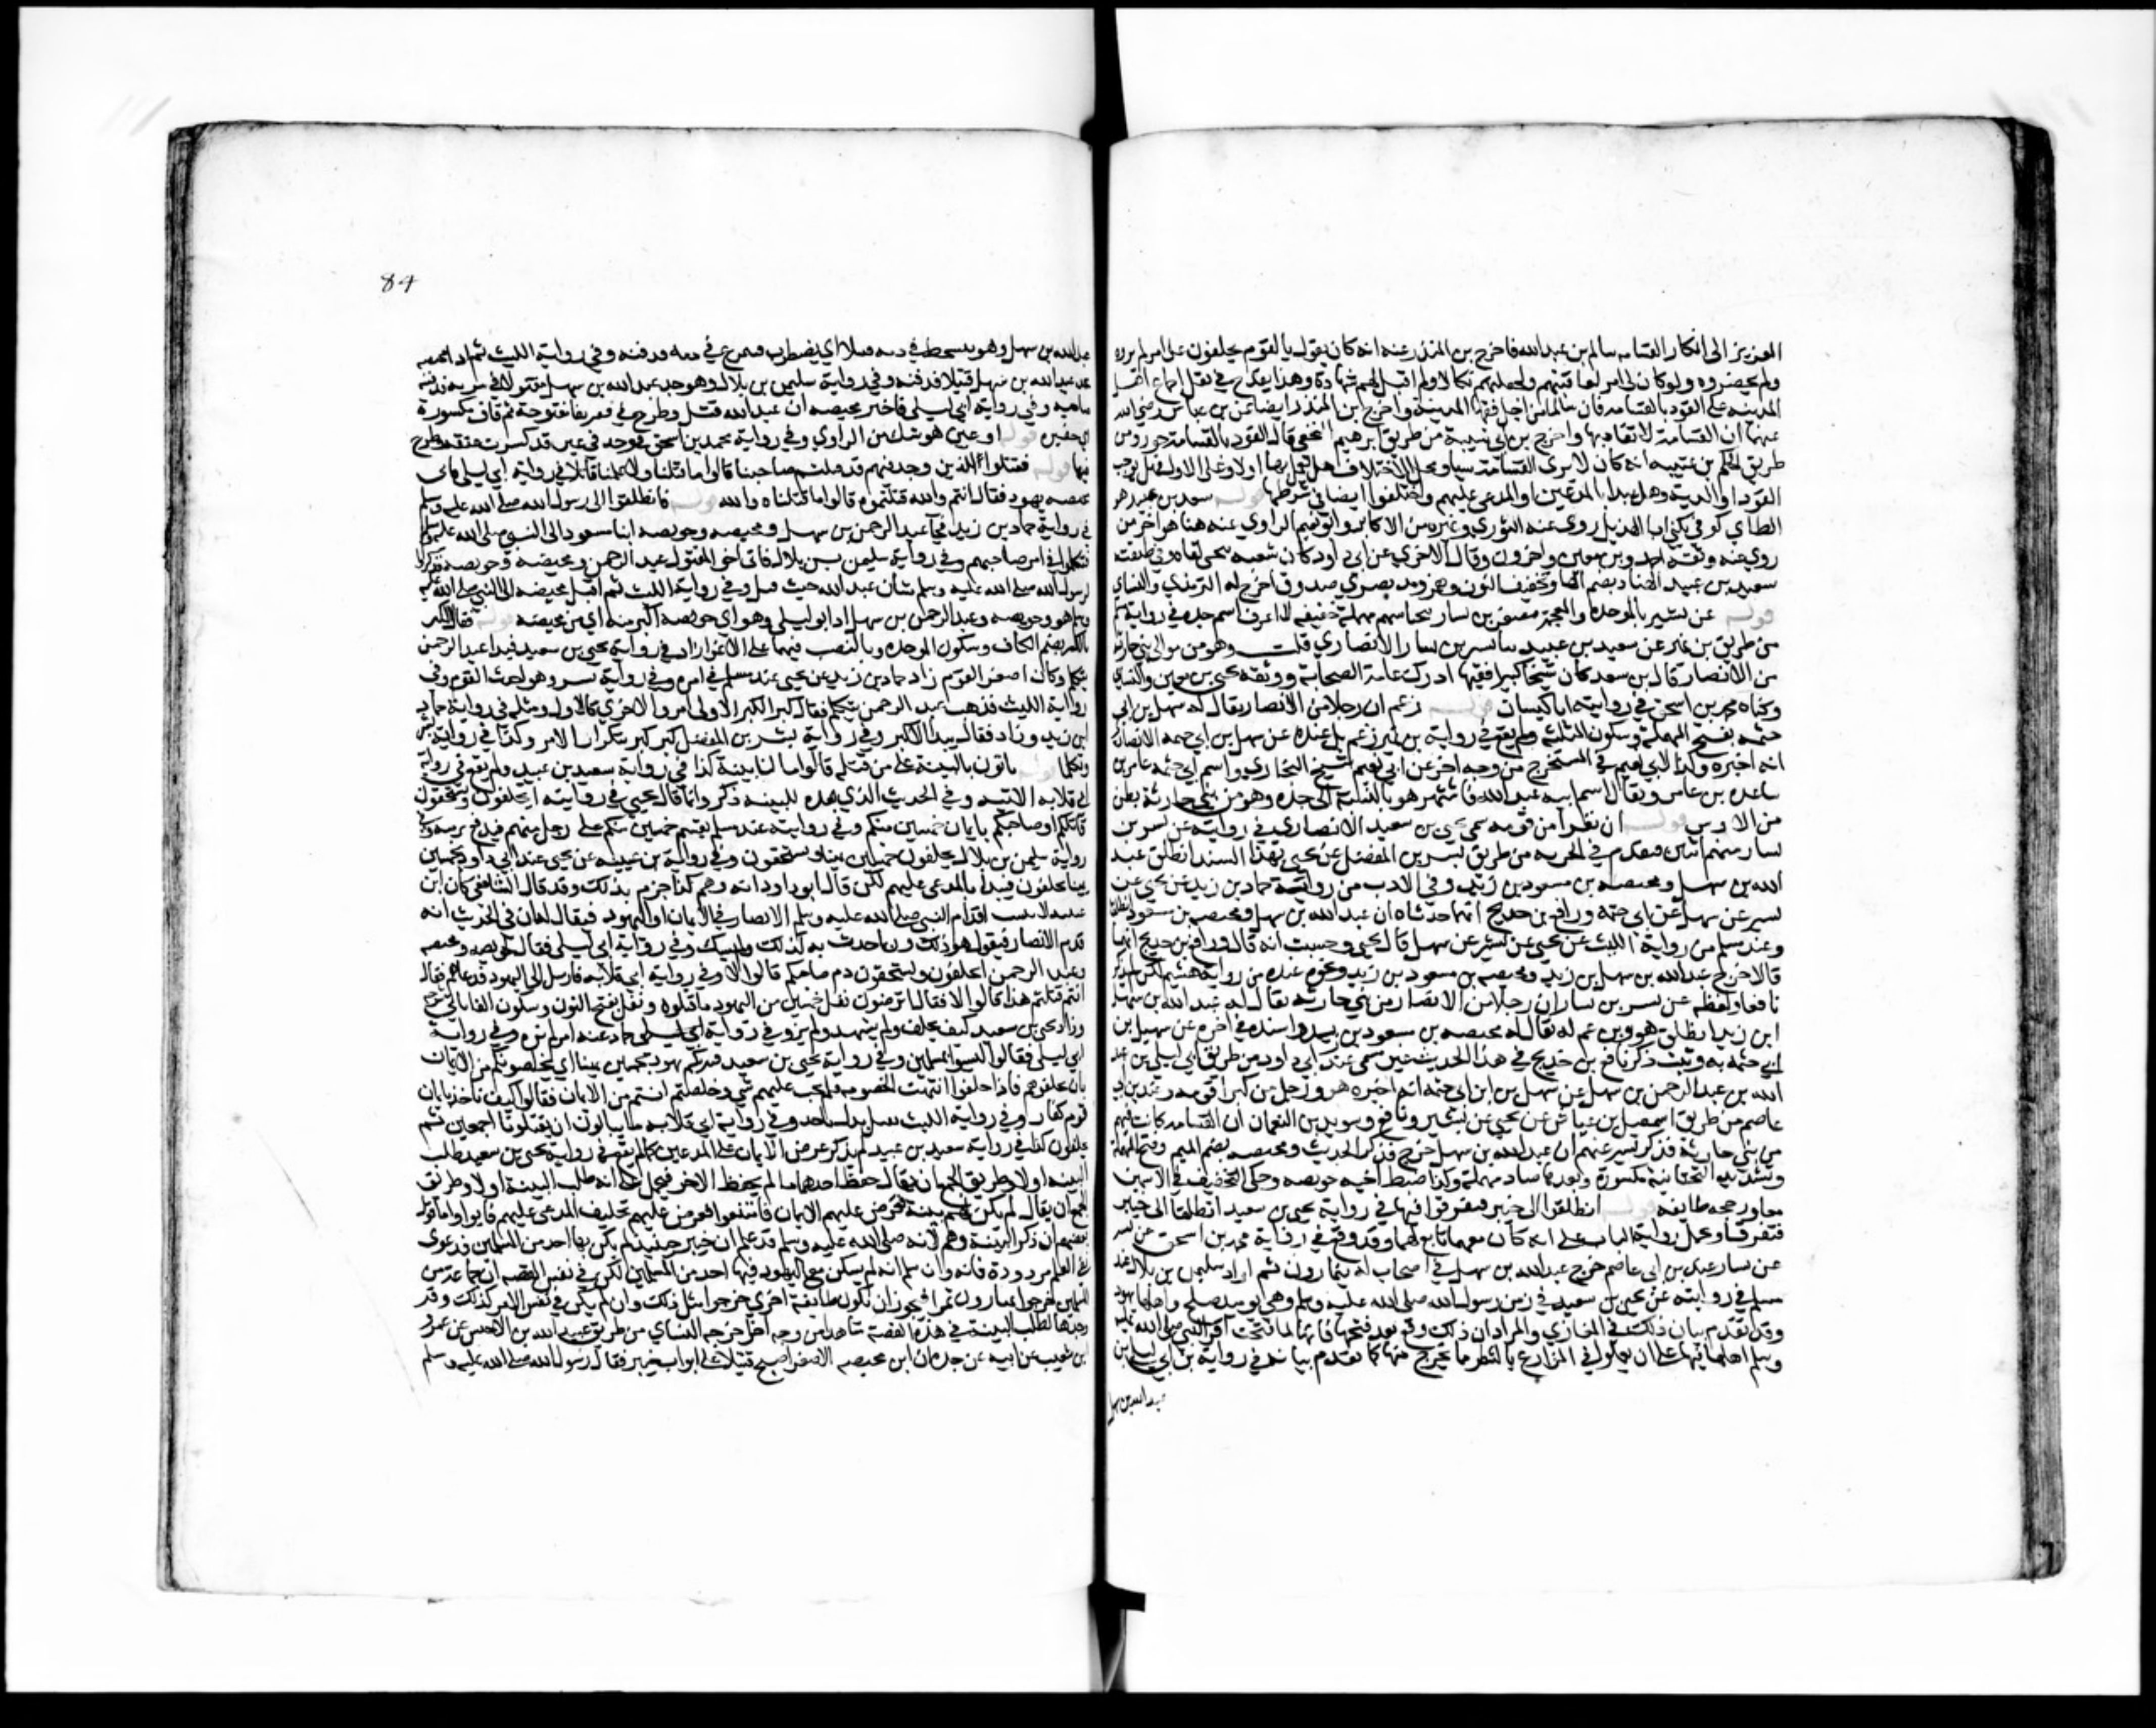 العزيز الى انكار القسامه سالم بن عبدالله فاخرج بن المنذر عنه انه كان يقول يا لقوم يحلفون على امر لم يروه
ولم يحضروه ولو كان لي امر لعاقبتهم ولجعلتهم نكالا ولم اقبل لهم شهادة وهذا يقدح في نقل اجماع اهل
المدينه على القود بالقسامه فان سالما من اجل فقها المدينة واخرج بن المنذر ايضا عن بن عباس رضي الله
عنهما ان القسامة لا تقاد بها واخرج بن ابي شيبة من طريق ابرهيم النخعي قال القود بالقسامة جور ومن
طريق الحكم بن عتيبه انه كان لا يرى القسامة سيا ومحل الاختلاف هل يعمل بها اولا وعلى الاول فهل توجب
القود او الدية وهل يبدا بالمدعين او المدعى عليهم واختلفوا ايضا في شرطها قوله سعيد بن عبيد هو
الطاي كوفي يكنى ابا الهذيل روى عنه الثوري وغيره من الاكابر وابو نعيم الراوي عنه هنا هو اخر من
روى عنه وثقه احمد وبن معين واخرون وقال الاجري عن ابي داود كان شعبه يتمنى لقاه وفي طبقته
سعيد بن عبيد الهناي بضم الها وتخفيف النون وهمز ومد بصري صدوق اخرج له الترمذي والنساي
قوله عن بشير بالموحده والمعجمة مصغر بن يسار بتحتانيه ومهملة خفيفه لا اعرف اسم جده في رواية مسلم
من طريق بن نمير عن سعيد بن عبيد بشير بن يسار الانصاري قلت وهو من موالي بني حارثة
من الانصار قال بن سعد كان شيخا كبيرا فقيها ادرك عامة الصحابة ووثقه يحيى بن معين والنساي
وكناه محمد بن اسحق في روايته ابا كيسان قوله زعم ان رجلا من الانصار يقال له سهل بن ابي
حثمه بفتح المهملة وسكون المثلثه ولم يقع في رواية بن نمير زعم بل عنده عن سهل بن ابي حثمه الانصاري
انه اخبره وكذا لابي نعيم في المستخرج من وجه اخر عن ابي نعيم شيخ البخاري واسم ابي حثمه عامر بن
ساعده بن عامر ويقال اسم ابيه عبدالله فاشتهر هو بالنسبة الى جده وهو من بني حارثة بطن
من الاوس قوله ان نفرا من قومه سمى يحيى بن سعيد الانصاري في روايته عن بشير بن
يسار منهم اثنين فتقدم في الجزيه من طريق بشر بن المفضل عن يحيى بهذا السند انطلق عبد
الله بن سهل ومحيصه بن مسعود بن زيد وفي الادب من رواية حماد بن زيد عن يحيى عن
بشير عن سهل بن ابي حثمه ورافع بن خديج انهما حدثاه ان عبد الله بن سهل ومحيصه بن مسعود انطلقا
وعند مسلم من رواية الليث عن يحيى عن بشير عن سهل قال يحيى وحسبت انه قال ورافع بن خديج انهما
قالا خرج عبدالله بن سهل بن زيد ومحيصه بن مسعود بن زيد ونحوه عنده من رواية هشيم لكن لم يذكر
نافعا ولفظه عن بشير بن يسار ان رجلا من الانصار من بني حارثه يقال له عبد الله بن سهل
ابن زيد انطلق هو وبن عم له يقال له محيصه بن مسعود بن زيد واسنده في اخره عن سهل بن
ابي حثمه به وثبت ذكر رافع بن خديج في هذا الحديث غير مسمى عند ابي داود من طريق ابي ليلى بن عبد
الله بن عبدالرحمن بن سهل عن سهل بن ابي حثمه انه اخبره هو ورجل من كبراء قومه وعند بن ابي
عاصم من طريق اسمعيل بن عياش عن يحيى عن بشير ونافع وسويد بن النعمان ان القسامه كانت فيهم
من بني حارثة فذكر بشير عنهم ان عبدالله بن سهل خرج فذكر الحديث ومحيصه بضم الميم وفتح المهملة
وتشديد التحتانيه مكسورة وبعدها صاد مهملة وكذا ضبط اخيه حويصه وحكي التخفيف في الاسمين
معا ورجحه طايفه قوله انطلقوا الى خيبر فتفرقوا فيها في رواية يحيى بن سعيد انطلقا الى خيبر
فتفرقا وتحمل رواية الباب على انه كان معهما تابع لهما وقد وقع في رواية محمد بن اسحق عن بشير
عن يسار عند بن ابي عاصم خرج عبدالله بن سهل في اصحاب له يمتارون تمرا زاد سليمن بن بلال عند
مسلم في روايته عن يحيى بن سعيد في زمن رسول الله صلى الله عليه وسلم وهي يوميذ صلح واهلها يهود
وقد تقدم بيان ذلك في المغازي والمراد ان ذلك وقع بعد فتحها فانها لما فتحت اقر النبي صلى الله عليه
وسلم اهلها فيها على ان يعملوا في المزارع بالشطر مما يخرج منها كما تقدم بيانه في رواية بن ابي ليلى بن
عبدالله بن سهل
84
عبدالله بن سهل وهو يتشحط في دمه قتيلا اي يضطرب فيتمرغ في دمه فدفنه وفي رواية الليث ثم اذا محيصه
يجد عبدالله بن سهل قتيلا فدفنه وفي رواية سليمن بن بلال وهو جد عبدالله بن سهل مقتولا في سربه فدفنه
صاحبه وفي رواية ابي ليلى فاخبر محيصه ان عبدالله قتل وطرح في فقير بفا مفتوحة ثم قاف مكسورة
اي حفير قوله او عين هو شك من الراوي وفي رواية محمد بن اسحق فوجد في عين قد كسرت عنقه وطرح
فيها قوله فقتلوا للذين وجد فيهم قد قتلتم صاحبنا قالوا ما قتلنا ولا علمنا قاتلا في رواية ابي ليلى فاتى
محيصه يهود فقال انتم والله قتلتموه قالوا ما قتلناه والله قوله فانطلقوا الى رسول الله صلى الله عليه وسلم
في رواية حماد بن زيد فجآ عبد الرحمن بن سهل ومحيصه وحويصه ابنا مسعود الى النبي صلى الله عليه وسلم
فتكلموا في امر صاحبهم وفي رواية سليمن بن بلال فاتى اخي المقتول عبد الرحمن ومحيصه وحويصه فذكروا
لرسول الله صلى الله عليه وسلم شان عبدالله حيث قتل وفي رواية الليث ثم اقبل محيصه الى النبي صلى الله عليه
وسلم هو وحويصه وعبدالرحمن بن سهل زاد ابو ليلى وهو اي حويصه اكبر منه اي من محيصه قوله فقال الكبر
الكبر بضم الكاف وسكون الموحده وبالنصب فيهما على الاغرا زاد في رواية يحيى بن سعيد فبدا عبد الرحمن
يتكلم وكان اصغر القوم زاد حماد بن زيد عن يحيى عند مسلم في امر اخيه وفي رواية بشر وهو احدث القوم وفي
رواية الليث فذهب عبد الرحمن يتكلم فقال كبر الكبر الاولى امر والاخرى كالاول ومثله في رواية حماد
ابن زيد وزاد فقال يبدا الاكبر وفي رواية بشر بن المفضل كبر كبر بتكرار الامر وكذا في رواية
وتكلما قوله تاتون بالبينة على من قتله قالوا ما لنا بينة كذا في رواية سعيد بن عبيد ولم يقع في رواية
ابي قلابه الاتيه وفي الحديث الذي بعده للبينه ذكر وانما قال يحيى في روايته اتحلفون وتستحقون
قاتلكم او صاحبكم بايمان خمسين منكم وفي روايته عند مسلم يقسم خمسين منكم على رجل منهم فيدفع برمته وفي
رواية سليمن بن بلال يحلفون خمسين يمينا ويستحقون وفي رواية بن عيينه عن يحيى عند ابي داود بخمسين
يمينا يحلفون فبدا بالمدعى عليهم لكن قال ابو داود انه وهم كذا جزم بذلك وقد قال الشافعي كان ابن
عيينه لا يثبت اقدم النبي صلى الله عليه وسلم الانصار في الايمان او اليهود فيقال له ان في الحديث انه
قدم الانصار فيقول هو ذلك وربما حدث به كذلك ولم يشك وفي رواية ابي ليلى فقال لحويصه ومحيصه
وعبد الرحمن اتحلفون وتستحقون دم صاحبكم قالوا لا وفي رواية ابي قلابه فارسل الى اليهود فدعاهم فقال
انتم قتلتم هذا قالوا لا فقال اترضون نفل خمسين من اليهود ما قتلوه ونفل بفتح النون وسكون الفا ياتي شرحه
وزاد يحيى بن سعيد كيف نحلف ولم نشهد ولم نر وفي رواية
ابي ليلى فقالوا ليسوا بمسلمين وفي رواية يحيى بن سعيد فتبريكم يهود بخمسين يمينا اي يخلصونكم من الايمان
بان يحلفوهم فاذا حلفوا انتهت الخصومه فلم يجب عليهم شي وخلصتم انتم من الايمان فقالوا كيف ناخذ بايمان
قوم كفار وفي رواية الليث نقبل بدل ناخذ وفي رواية ابي قلابه ما يبالون ان يقتلونا اجمعين ثم
يحلفون كذا في رواية سعيد بن عبيد لم يذكر عرض الايمان على المدعين كما لم يقع في رواية يحيى بن سعيد طلب
البينه اولا وطريق الجمع ان يقال حفظ احدهما ما لم يحفظ الاخر فيحمل على انه طلب البينة اولا وطريق
الجمع ان يقال لم يكن لهم بينة فعرض عليهم الايمان فامتنعوا فعرض عليهم تحليف المدعى عليهم فابوا واما قول
بعضهم ان ذكر البينة وهم لانه صلى الله عليه وسلم قد علم ان خيبر حينيذ لم يكن بها احد من المسلمين فدعوى
نفي العلم مردودة فانه وان سلم انه لم يسكن مع اليهود فيها احد من المسلمين لكن في نفس القصه ان جماعة من
المسلمين خرجوا يمتارون تمرا فيجوز ان تكون طايفة اخرى خرجوا لمثل ذلك وان لم يكن في نفس الامر كذلك وقد
وجدنا لطلب البينة في هذه القصة شاهدا من وجه اخر اخرجه النساي من طريق عبيد الله بن الاخنس عن عمرو
ابن شعيب عن ابيه عن جده ان ابن محيصه الاصغر اصبح قتيلا على ابواب خيبر فقال رسول الله صلى الله عليه وسلم